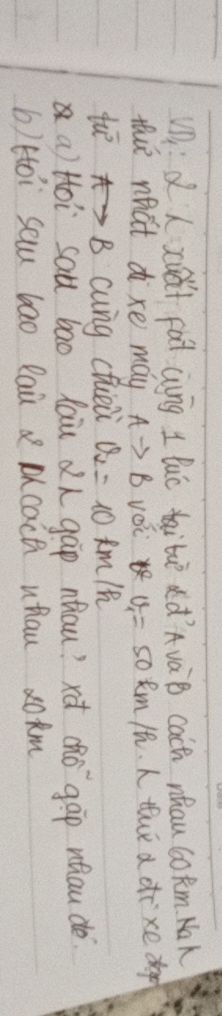 VD1: 2 h xuất fát cùng 1 lúc tại từ 2 đ' A và B cách nhau 60km. Ng h
thứ nhất đi xe máy A → B với v1 = 50 km/h. h thứ 2 đi xe đạp
từ A → B cùng chiều v2 = 10 km/h
a) Hỏi sau bao lâu 2h gặp nhau? xđ chỗ gặp nhau đó.
b) Hỏi sau bao lâu 2 h cách nhau 20km